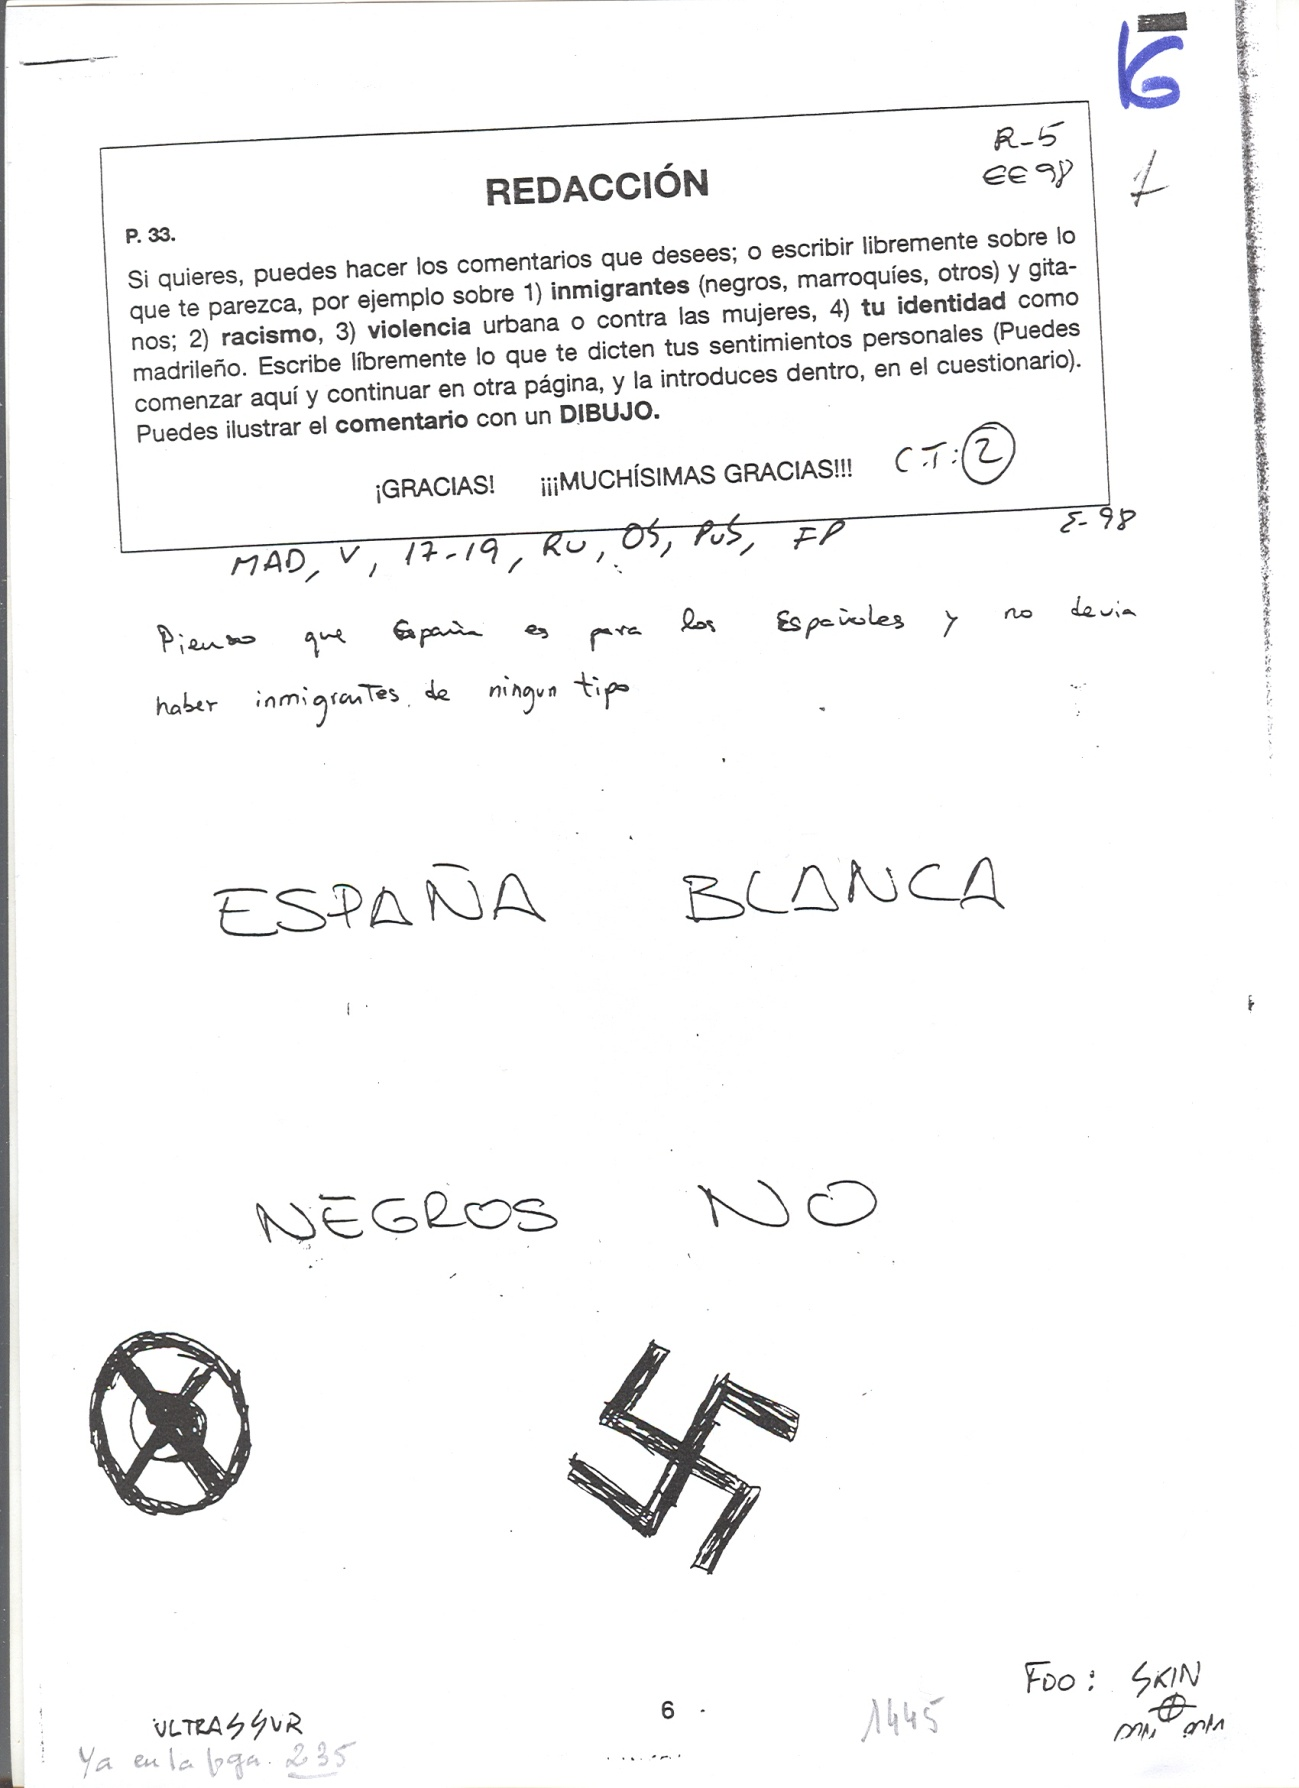 6
R-5
EE 98
1
REDACCIÓN
P. 33.
Si quieres, puedes hacer los comentarios que desees; o escribir libremente sobre lo
que te parezca, por ejemplo sobre 1) inmigrantes (negros, marroquíes, otros) y gita-
nos; 2) racismo, 3) violencia urbana o contra las mujeres, 4) tu identidad como
madrileño. Escribe líbremente lo que te dicten tus sentimientos personales (Puedes
comenzar aquí y continuar en otra página, y la introduces dentro, en el cuestionario).
Puedes ilustrar el comentario con un DIBUJO.
¡GRACIAS! ¡¡¡MUCHÍSIMAS GRACIAS!!! C.T: 2
E-98
MAD, V, 17-19, RU, OS, PUS, FP
Pienso que España es para los Españoles y no devia
haber inmigrantes de ningun tipo
ESPAÑA BLANCA
NEGROS NO
FDO: SKIN
ULTRASSUR
6
1445
Ya en la pga. 235